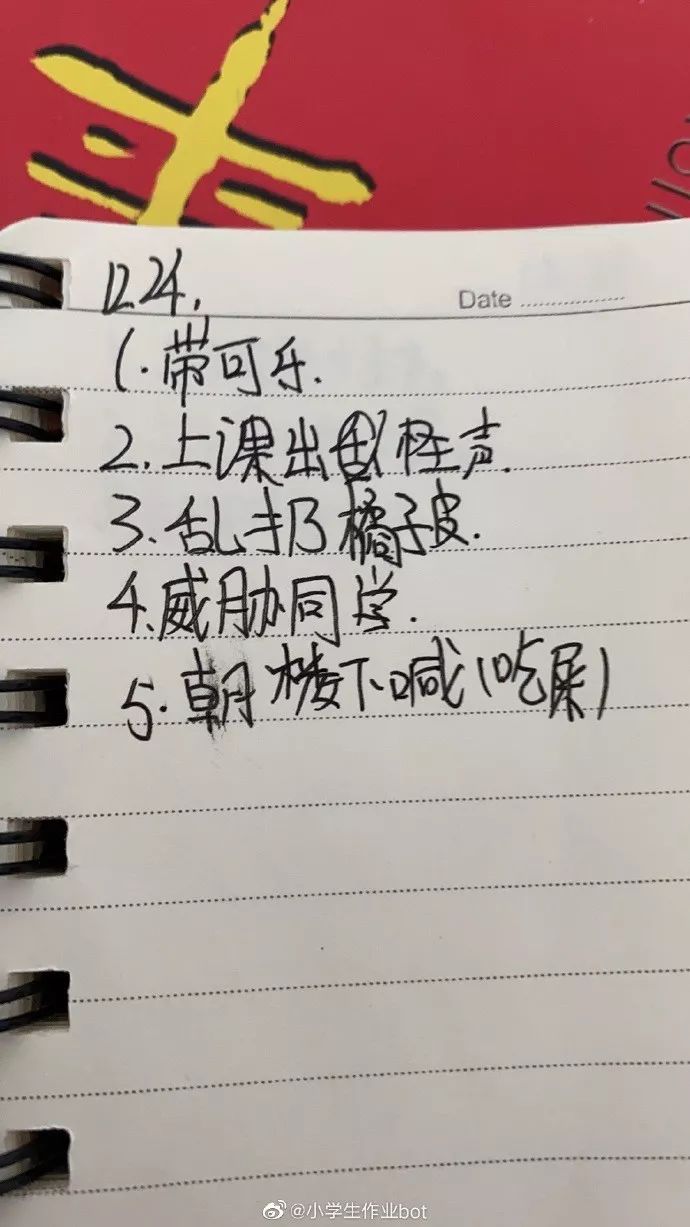 12.24.
Date
1.带可乐.
2.上课出怪声.
3.乱扔橘子皮.
4.威胁同学.
5.朝楼下喊(吃屎)
@小学生作业bot